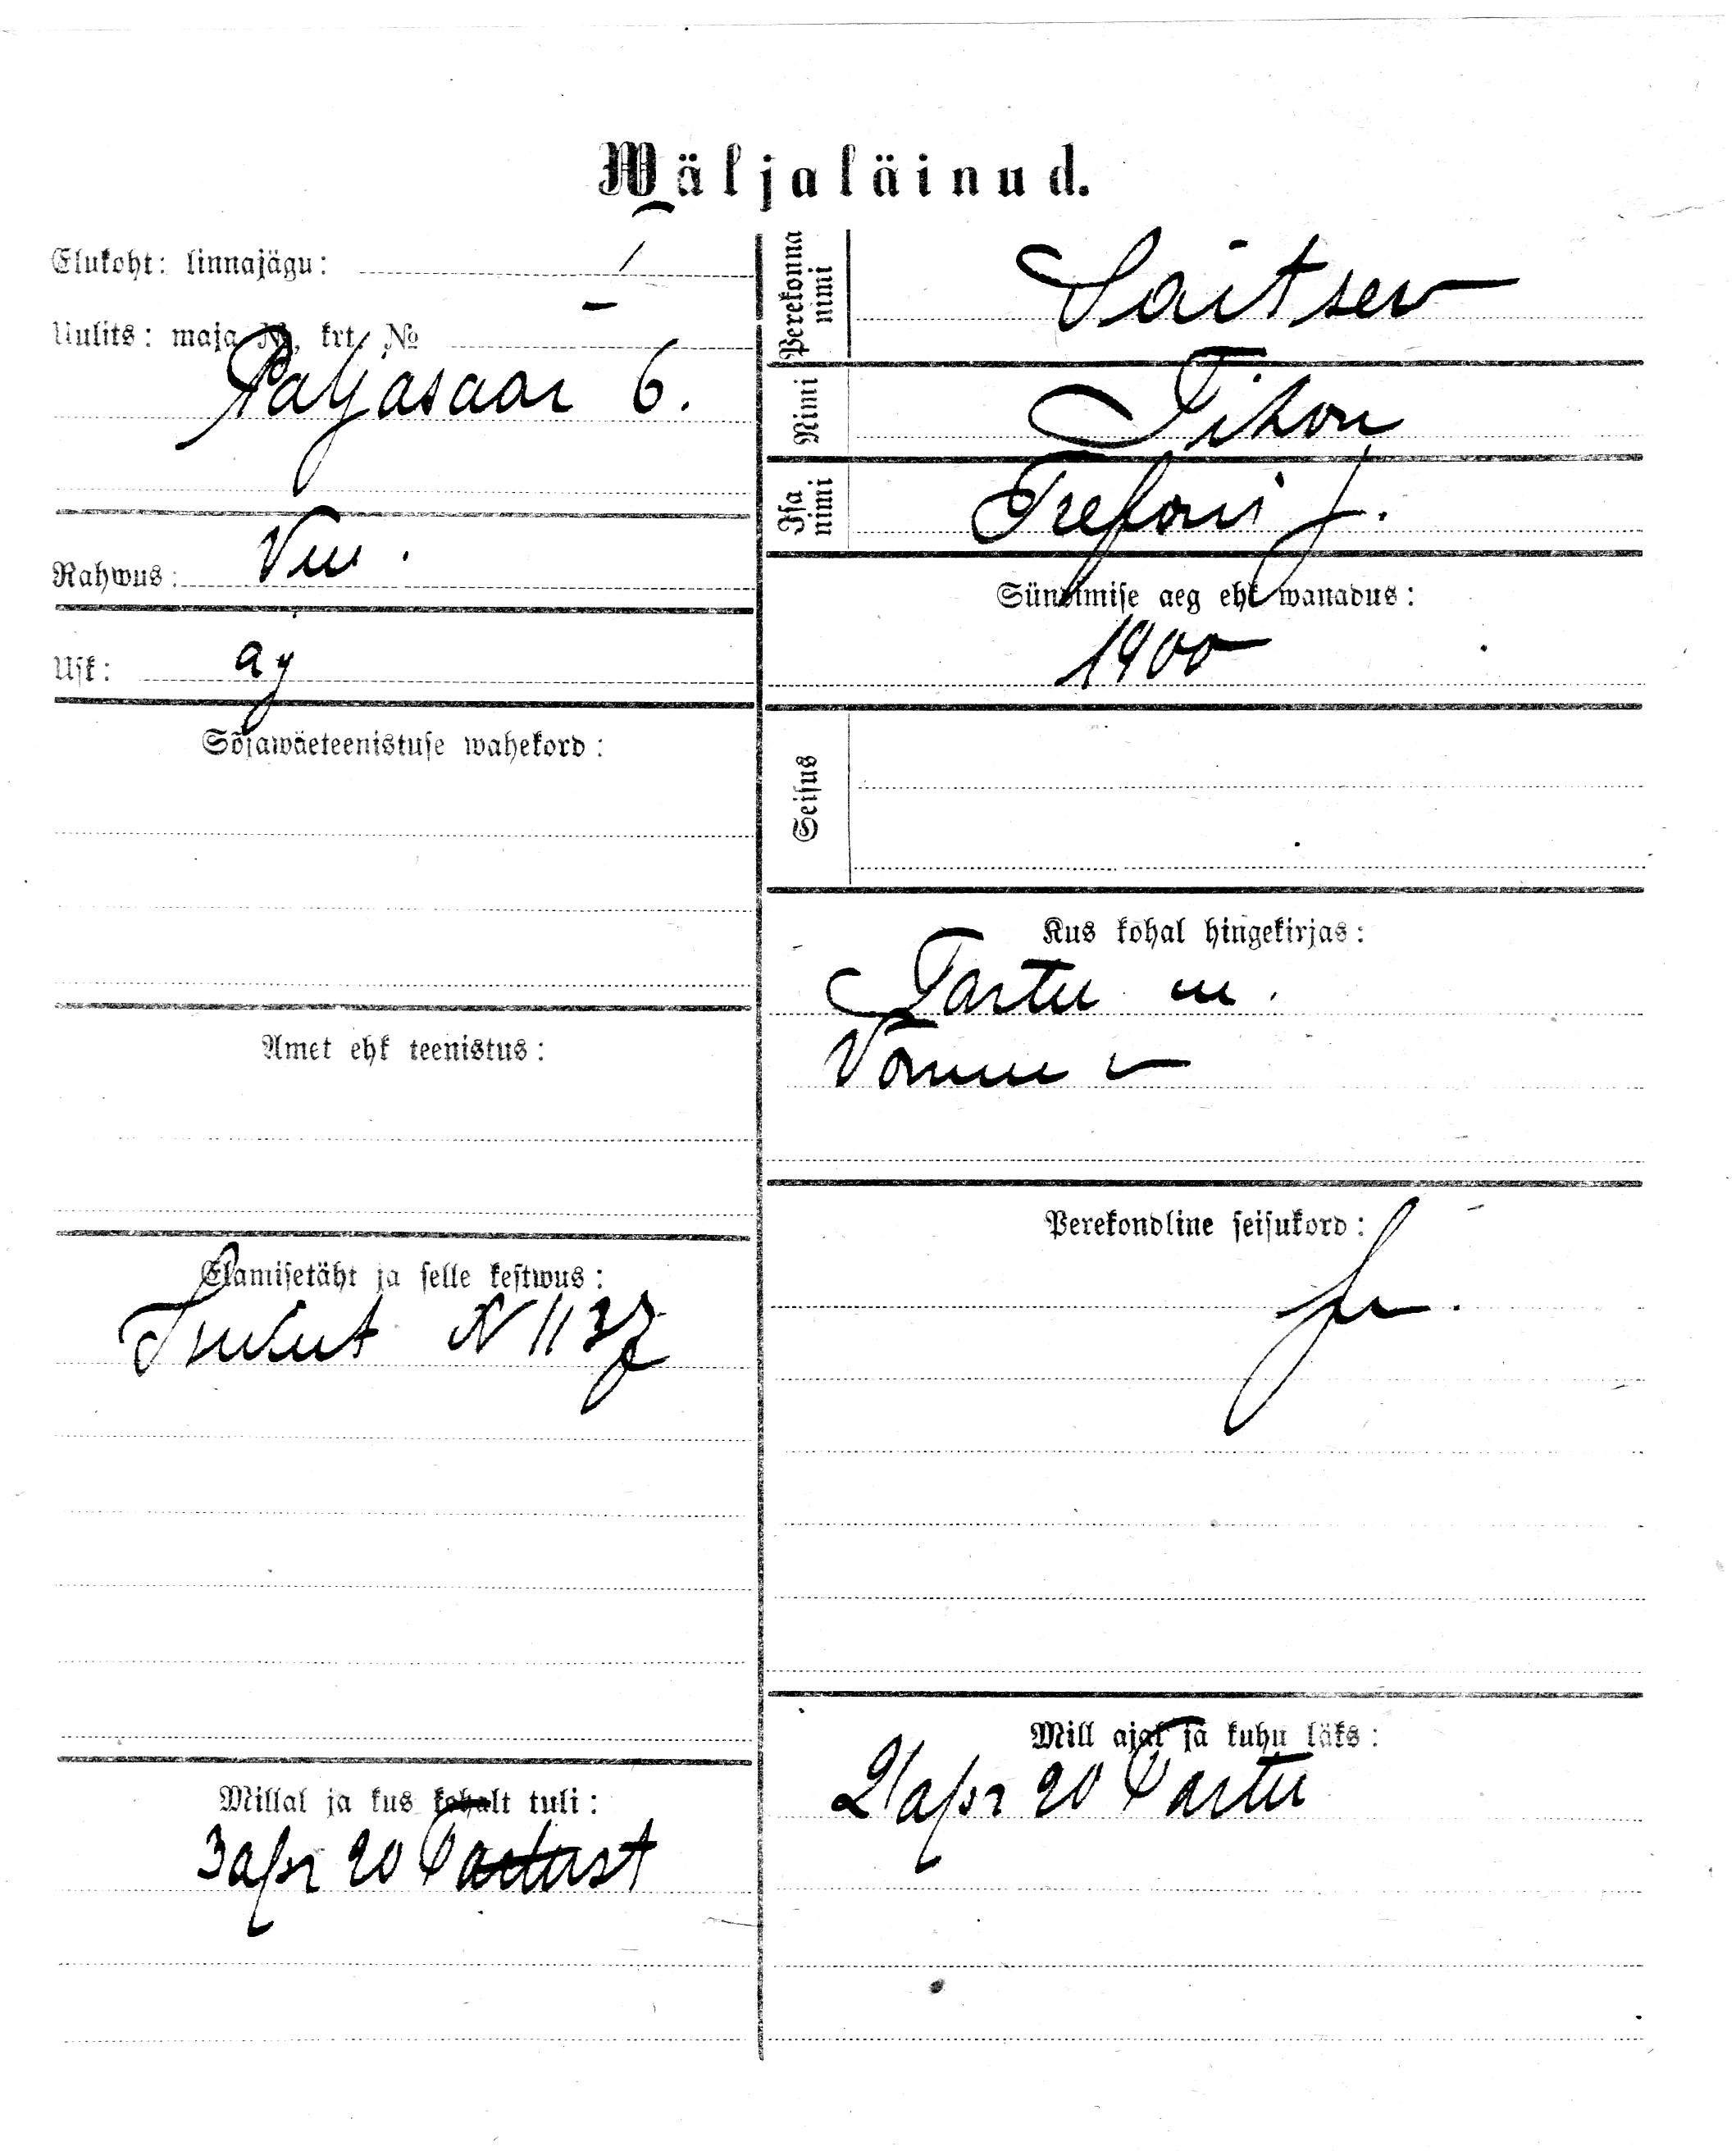 Wäljaläinud.
Elukoht: linnajägu: I
Uulits: maja №, krt. №
Paljasaar 6.
Rahwus: Ven.
Usk: ag
Sõjawäeteenistuse wahekord:
Amet ehk teenistus:
Elamisetäht ja selle kestwus:
N 1137
Millal ja kus kohalt tuli:
3 apr 20 Tartust
Perekonna nimi Saitsev
Nimi Tihon
Isa nimi Trefoni p.
Sündimise aeg ehk wanadus:
1900
Seisus
Kus kohal hingekirjas:
Tartu m.
Võnnu v
Perekondline seisukord:
Mill ajal ja kuhu läks:
21 apr 20 Tartu